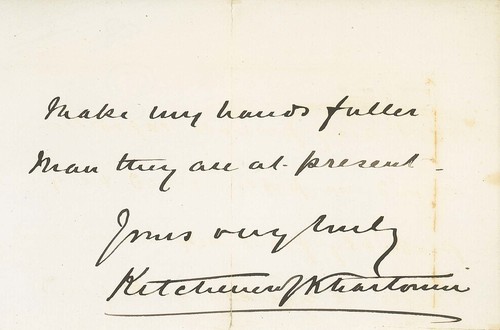 Make my hands fuller
than they are at present.
Yours very truly
Kitchener of Khartoum